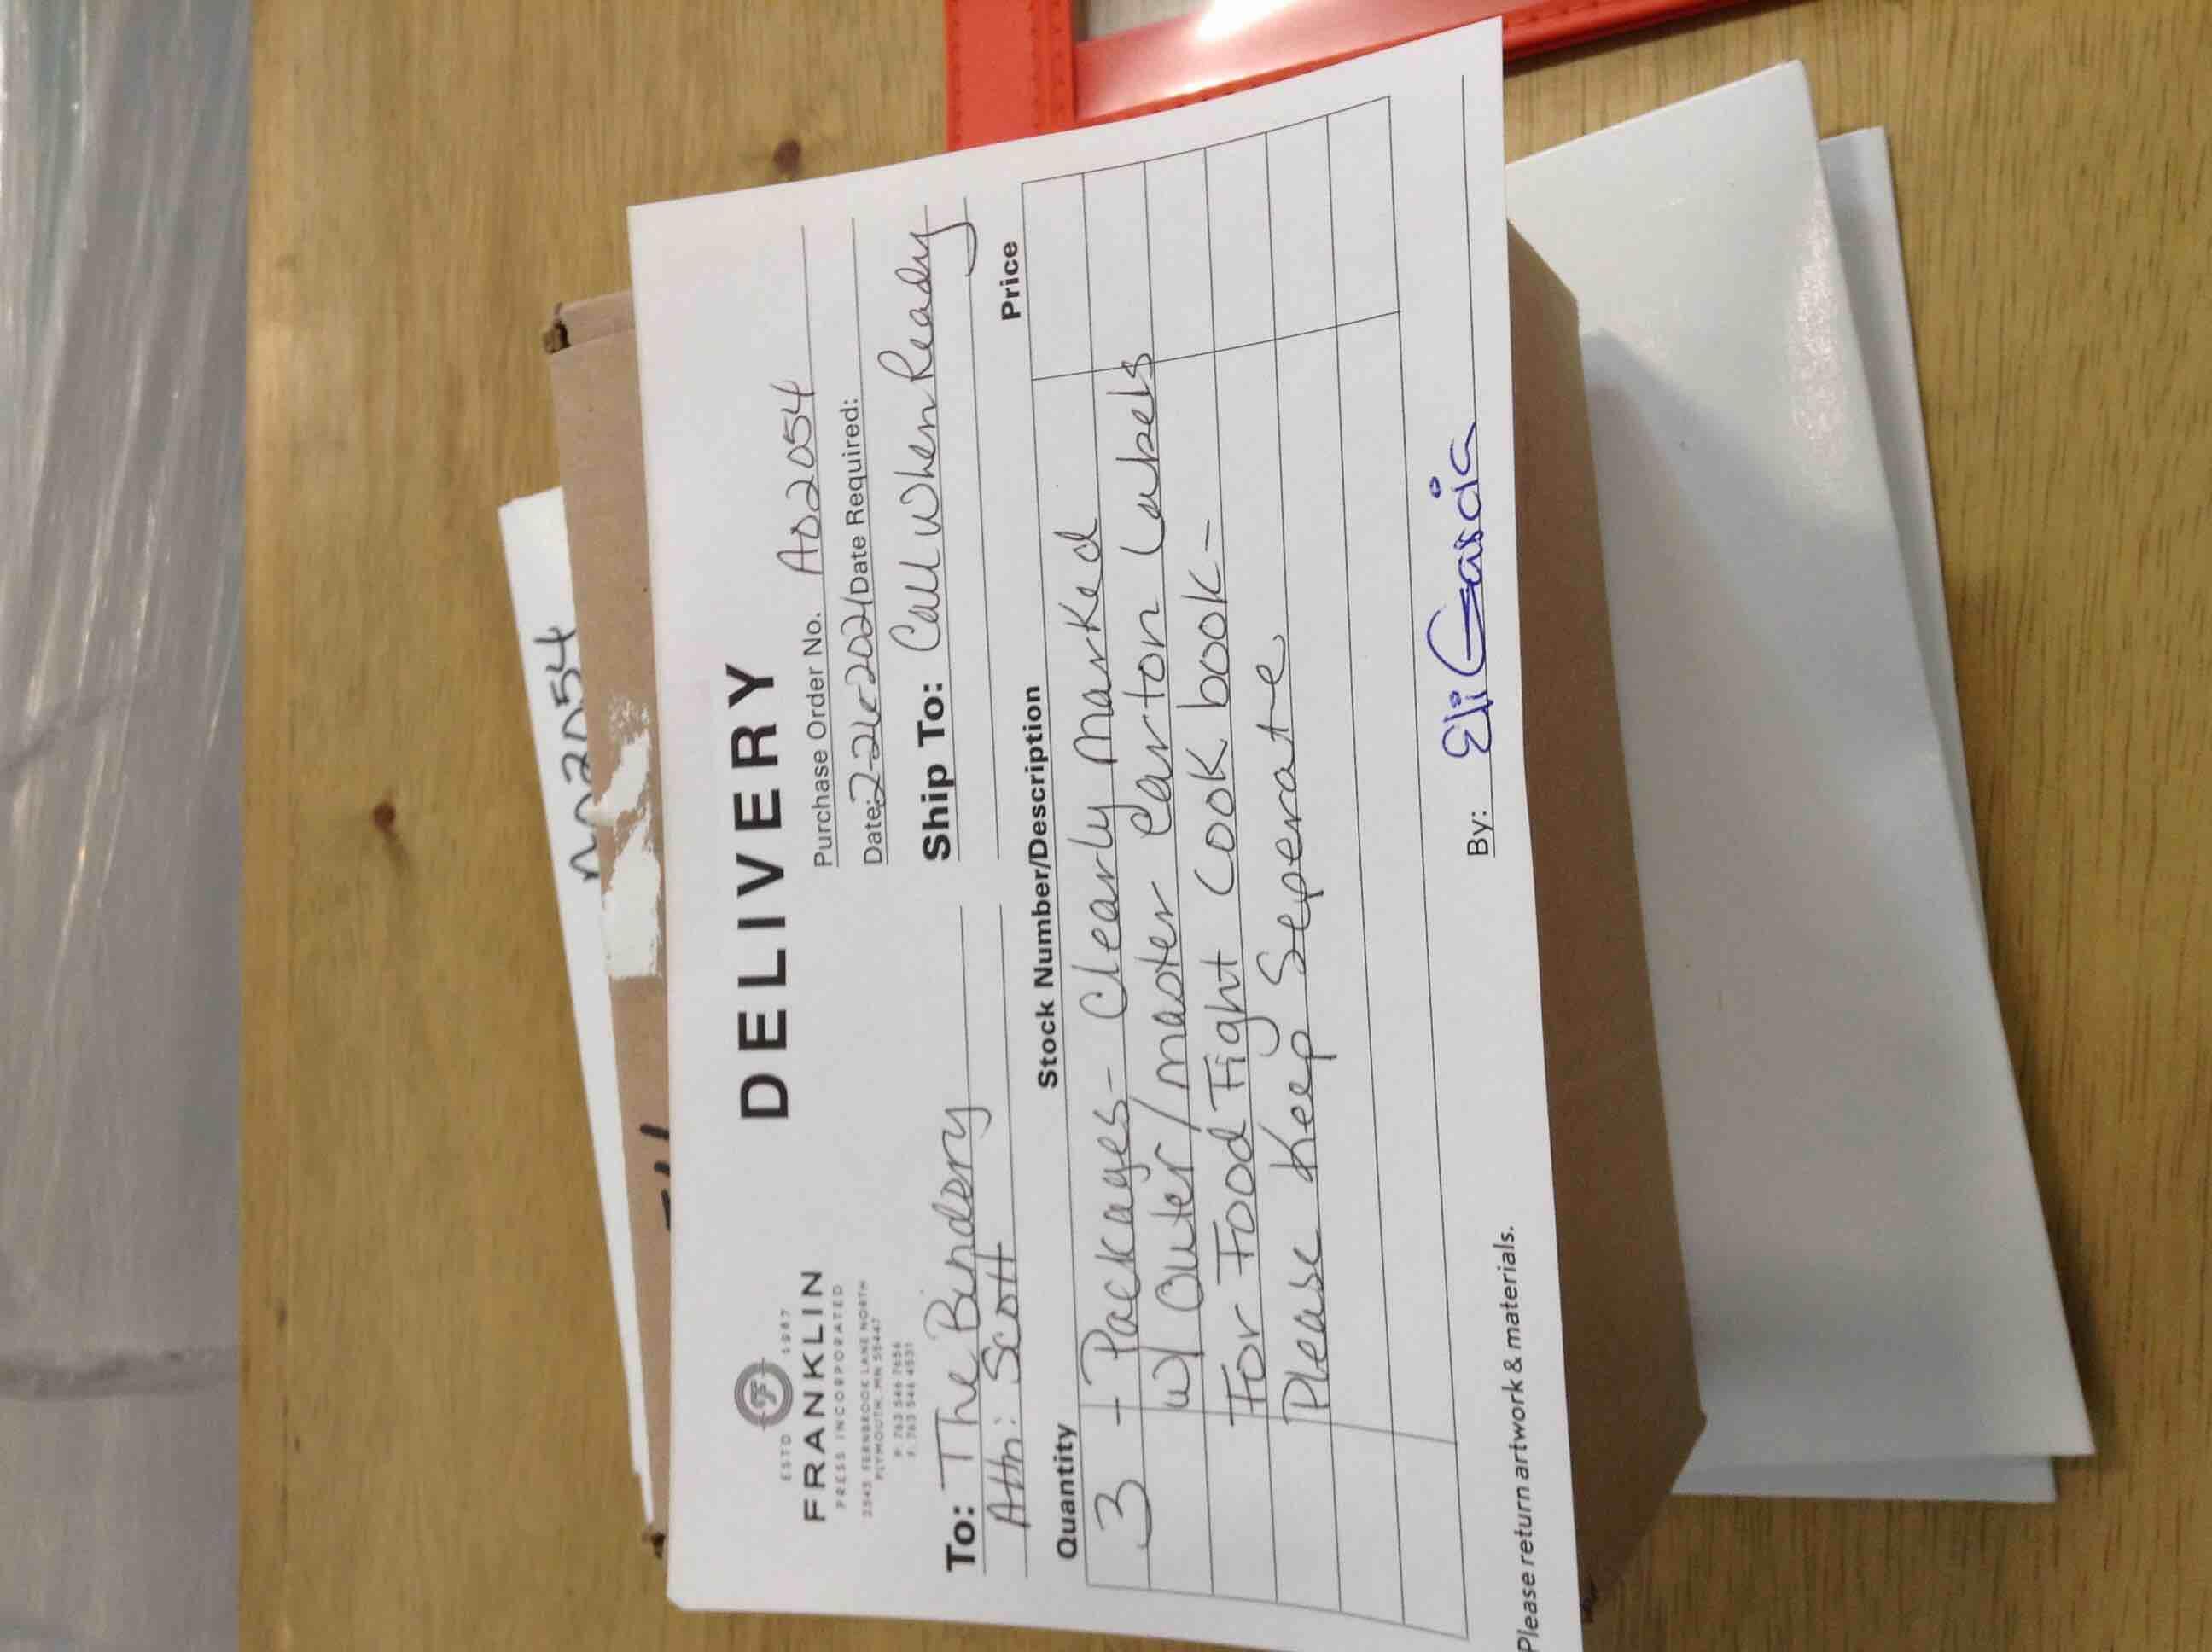 ESTD 1987
FRANKLIN
PRESS INCORPORATED
2543 FERNBROOK LANE NORTH
PLYMOUTH, MN 55447
P: 763 546 7656
F: 763 546 4531
DELIVERY
Purchase Order No. A02054
Date: 2-26-2021 Date Required:
To: The Bindery
Attn: Scott
Ship To: Call When Ready
Quantity Stock Number/Description Price
3 - Packages - Clearly Marked
w/ Outer/master Carton Labels
For Food Fight Cook book -
Please Keep Seperate
By: Eli Garcia
Please return artwork & materials.